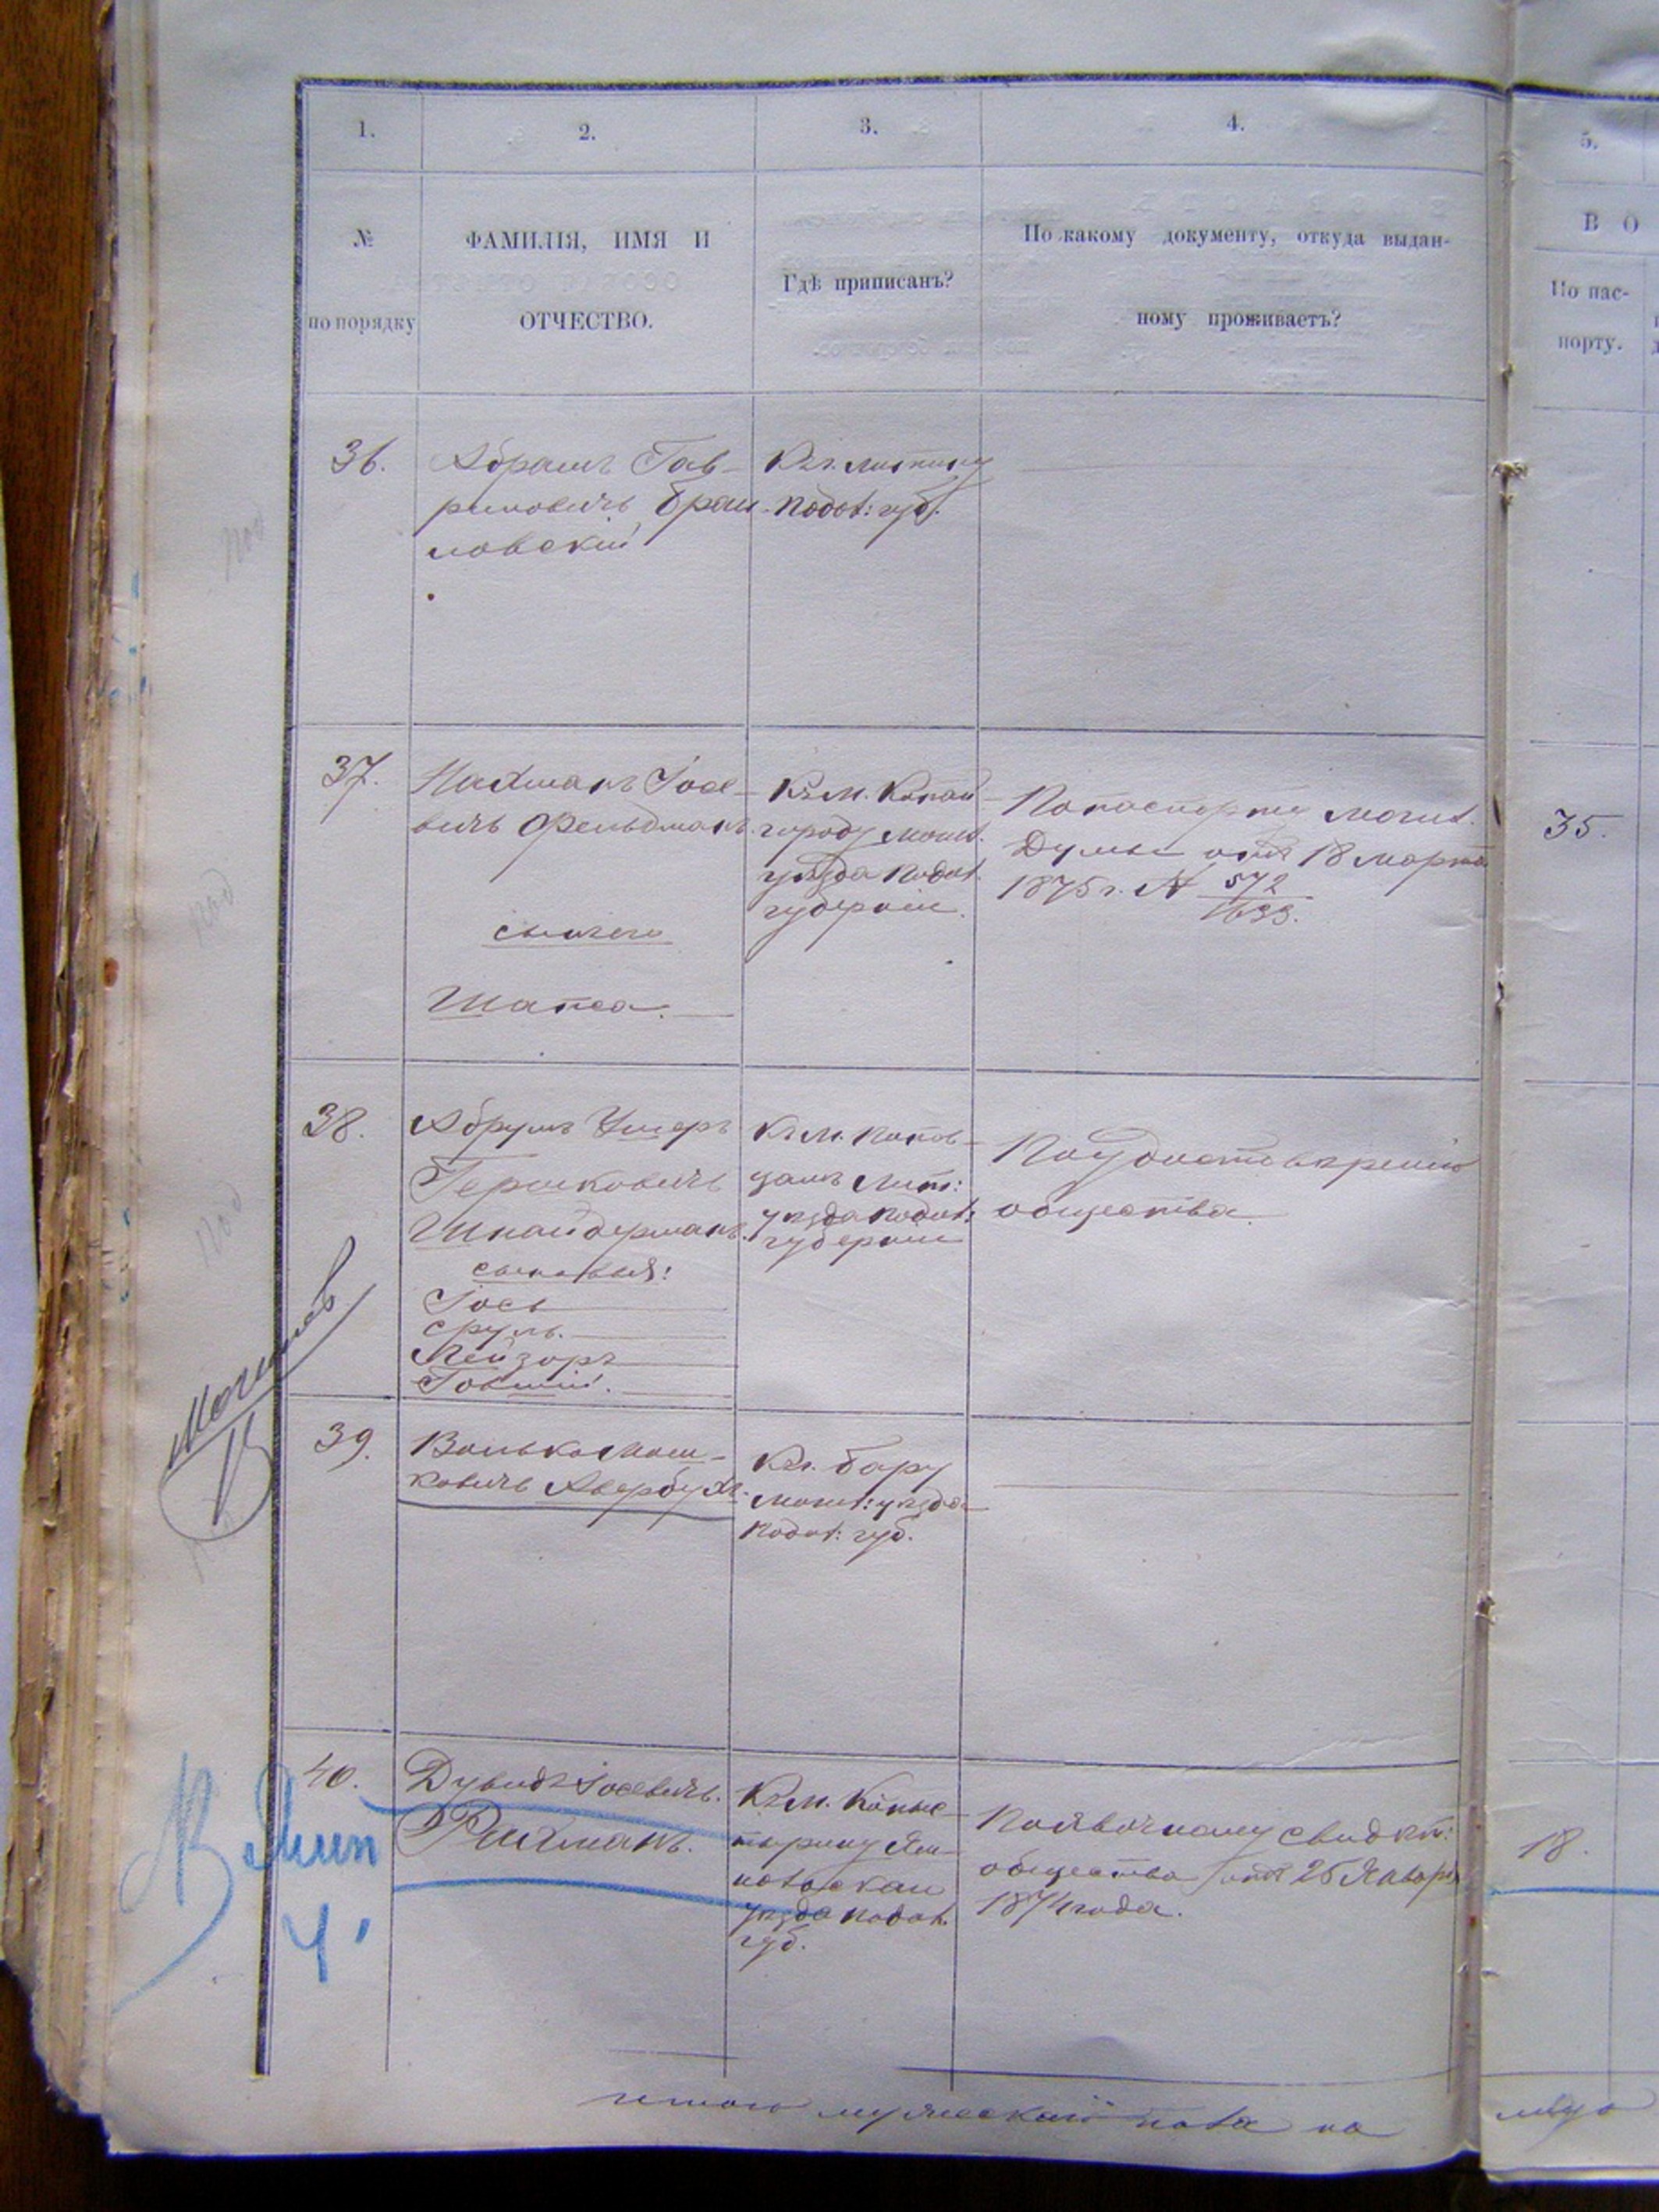 1.
2.
3.
4.
5.
№
по порядку
ФАМИЛІЯ, ИМЯ И
ОТЧЕСТВО.
Гдѣ приписанъ?
По какому документу, откуда выдан-
ному проживаетъ?
В О
По пас-
порту.
36.
Абрамъ Гав-
риловичъ Брац-
лавскій
Къ г. Литину
Подол: губ.
37.
Нахманъ Іосе-
вичъ Фельдманъ.
сынъ его
Шапса.
Къ м. Копай-
городу Могил.
уѣзда Подол.
губерніи.
По паспорту Могил.
Думы отъ 18 марта
1875 г. №
572
1633.
35.
38.
Абрумъ Ушеръ
Гершковичъ
Шнайдерманъ.
сыновья:
Іось
Сруль.
Лейзоръ
Говшій.
Къ м.
Лит:
уѣзда Подол:
губерніи
По удостовѣренію
общества.
Могилев
39.
Волько Мош-
ковичъ Авербухъ.
Къ г. Бару
Могил: уѣзда
Подол: губ.
40.
Дувидъ Іосевичъ.
Рахманъ.
Къ м. Копые-
тырину Ям-
польскаго
уѣзда Подол.
губ.
По явочному свидѣт:
общества отъ 25 Января
1874 года.
18.
4
итого мужескаго пола на